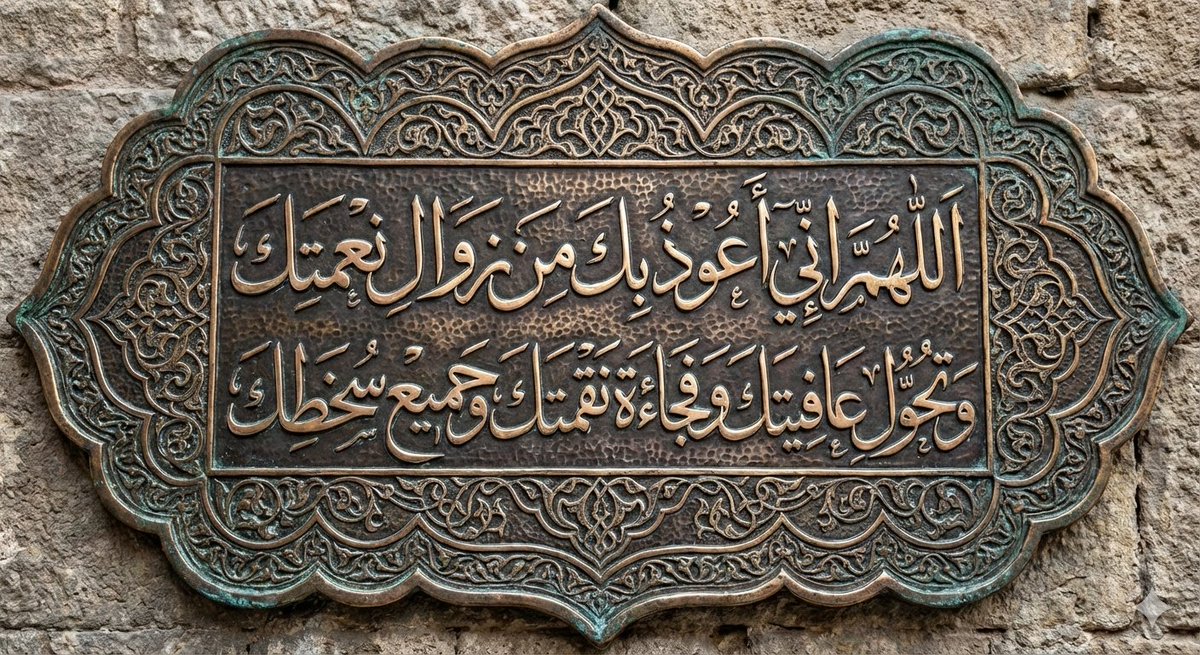 اَللّٰهُمَّ إِنِّي أَعُوْذُ بِكَ مِنْ زَوَالِ نِعْمَتِكَ
وَتَحَوُّلِ عَافِيَتِكَ وَفَجَاءَةِ نَقْمَتِكَ وَجَمِيْعِ سُخَطِكَ